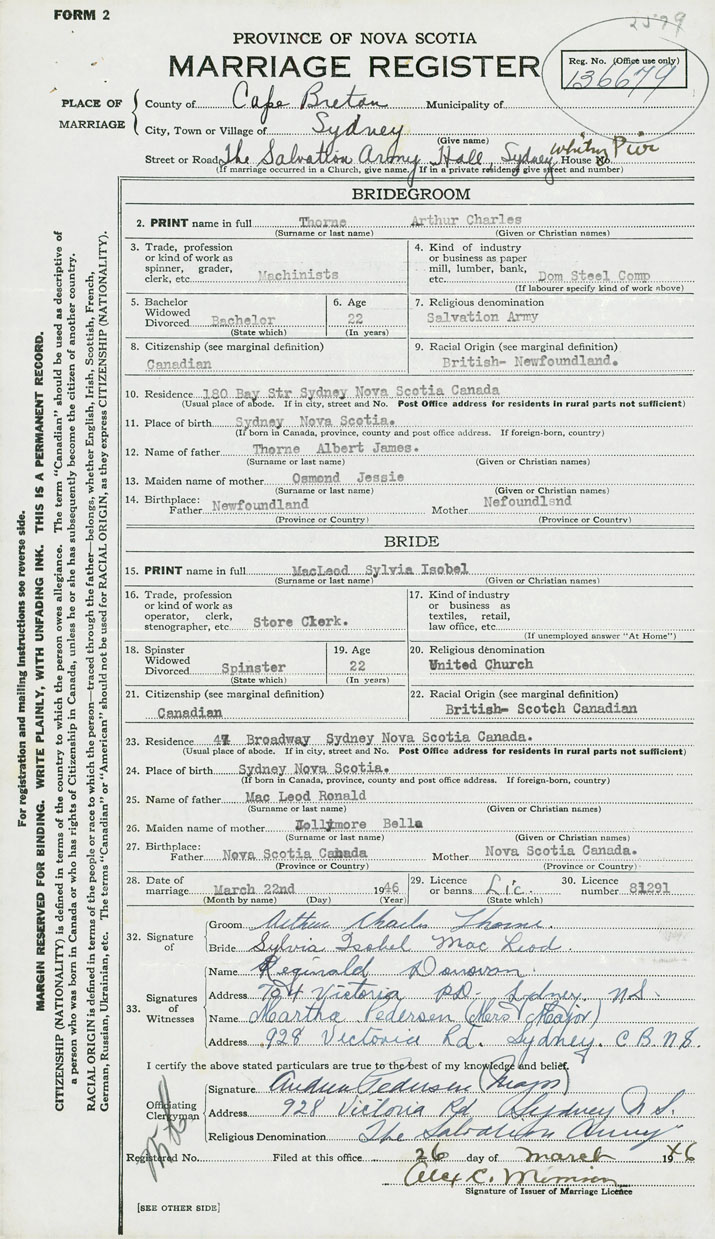 FORM 2
2579
PROVINCE OF NOVA SCOTIA
MARRIAGE REGISTER
Reg. No. (Office use only)
136679
PLACE OF MARRIAGE
County of Cape Breton Municipality of
City, Town or Village of Sydney
(Give name)
Street or Road The Salvation Army Hall, Sydney Whitney Pier House No.
(If marriage occurred in a Church, give name. If in a private residence give street and number)
BRIDEGROOM
2. PRINT name in full Thorne Arthur Charles
(Surname or last name) (Given or Christian names)
3. Trade, profession or kind of work as spinner, grader, clerk, etc. Machinists
4. Kind of industry or business as paper mill, lumber, bank, etc. Dom Steel Comp
(If labourer specify kind of work above)
5. Bachelor Widowed Divorced Bachelor
(State which)
6. Age 22
(In years)
7. Religious denomination
Salvation Army
8. Citizenship (see marginal definition)
Canadian
9. Racial Origin (see marginal definition)
British- Newfoundland.
10. Residence 180 Bay Str Sydney Nova Scotia Canada
(Usual place of abode. If in city, street and No. Post Office address for residents in rural parts not sufficient)
11. Place of birth Sydney Nova Scotia.
(If born in Canada, province, county and post office address. If foreign-born, country)
12. Name of father Thorne Albert James.
(Surname or last name) (Given or Christian names)
13. Maiden name of mother Osmond Jessie
(Surname or last name) (Given or Christian names)
14. Birthplace: Father Newfoundland Mother Nefoundlsnd
(Province or Country) (Province or Country)
BRIDE
15. PRINT name in full MacLeod Sylvia Isobel
(Surname or last name) (Given or Christian names)
16. Trade, profession or kind of work as operator, clerk, stenographer, etc. Store Clerk.
17. Kind of industry or business as textiles, retail, law office, etc.
(If unemployed answer "At Home")
18. Spinster Widowed Divorced Spinster
(State which)
19. Age 22
(In years)
20. Religious denomination
United Church
21. Citizenship (see marginal definition)
Canadian
22. Racial Origin (see marginal definition)
British- Scotch Canadian
23. Residence 47 Broadway Sydney Nova Scotia Canada.
(Usual place of abode. If in city, street and No. Post Office address for residents in rural parts not sufficient)
24. Place of birth Sydney Nova Scotia.
(If born in Canada, province, county and post office address. If foreign-born, country)
25. Name of father Mac Leod Ronald
(Surname or last name) (Given or Christian names)
26. Maiden name of mother Jollymore Bella
(Surname or last name) (Given or Christian names)
27. Birthplace: Father Nova Scotia Canada Mother Nova Scotia Canada.
(Province or Country) (Province or Country)
28. Date of marriage March 22nd 1946
(Month by name) (Day) (Year)
29. Licence or banns Lic.
(State which)
30. Licence number 81291
32. Signature of
Groom Arthur Charles Thorne.
Bride Sylvia Isobel Mac Leod.
33. Signatures of Witnesses
Name Reginald Donovan.
Address 704 Victoria RD. Sydney. N S.
Name Martha Pedersen (Mrs Major)
Address 928 Victoria Rd. Sydney. C. B. N. S.
I certify the above stated particulars are true to the best of my knowledge and belief.
Officiating Clergyman
Signature Andrew Pedersen (Major)
Address 928 Victoria Rd Sydney N S.
Religious Denomination The Salvation Army
Registered No. Filed at this office 26 day of March 1946
Alex C. Morrison
Signature of Issuer of Marriage Licence
[SEE OTHER SIDE]
For registration and mailing instructions see reverse side.
MARGIN RESERVED FOR BINDING. WRITE PLAINLY, WITH UNFADING INK. THIS IS A PERMANENT RECORD.
CITIZENSHIP (NATIONALITY) is defined in terms of the country to which the person owes allegiance. The term "Canadian" should be used as descriptive of
a person who was born in Canada or who has rights of Citizenship in Canada, unless he or she has subsequently become the citizen of another country.
RACIAL ORIGIN is defined in terms of the people or race to which the person—traced through the father—belongs, whether English, Irish, Scottish, French,
German, Russian, Ukrainian, etc. The terms "Canadian" or "American" should not be used for RACIAL ORIGIN, as they express CITIZENSHIP (NATIONALITY).